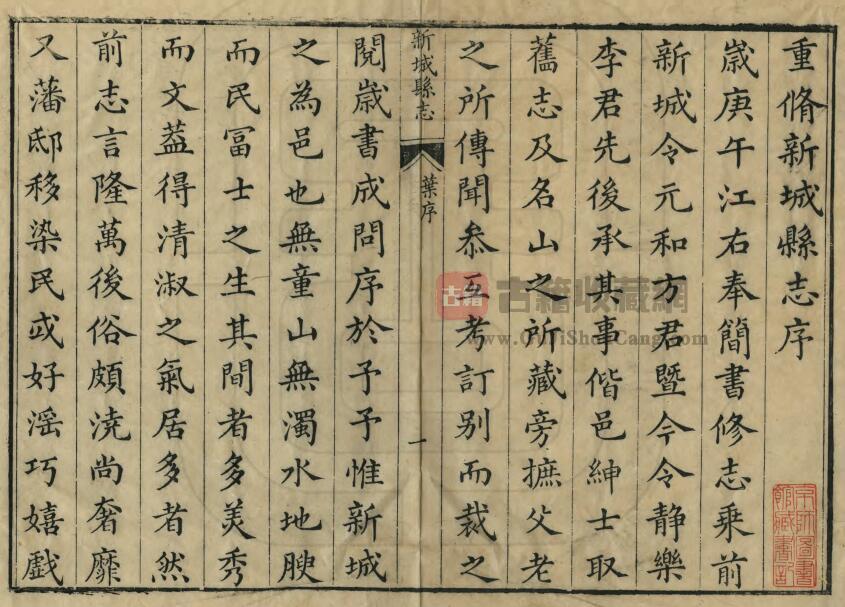 重脩新城縣志序
歲庚午江右奉簡書修志乘前
新城令元和方君暨今令静樂
李君先後承其事偕邑紳士取
舊志及名山之所藏旁摭父老
之所傳聞叅互考訂別而裁之
新城縣志 葉序 一
閱歲書成問序於予予惟新城
之為邑也無童山無濁水地腴
而民冨士之生其間者多美秀
而文葢得清淑之氣居多者然
前志言隆萬後俗頗澆尚奢靡
又藩邸移染民或好滛巧嬉戲
古籍
古籍收藏網
www.GuJiShouCang.com